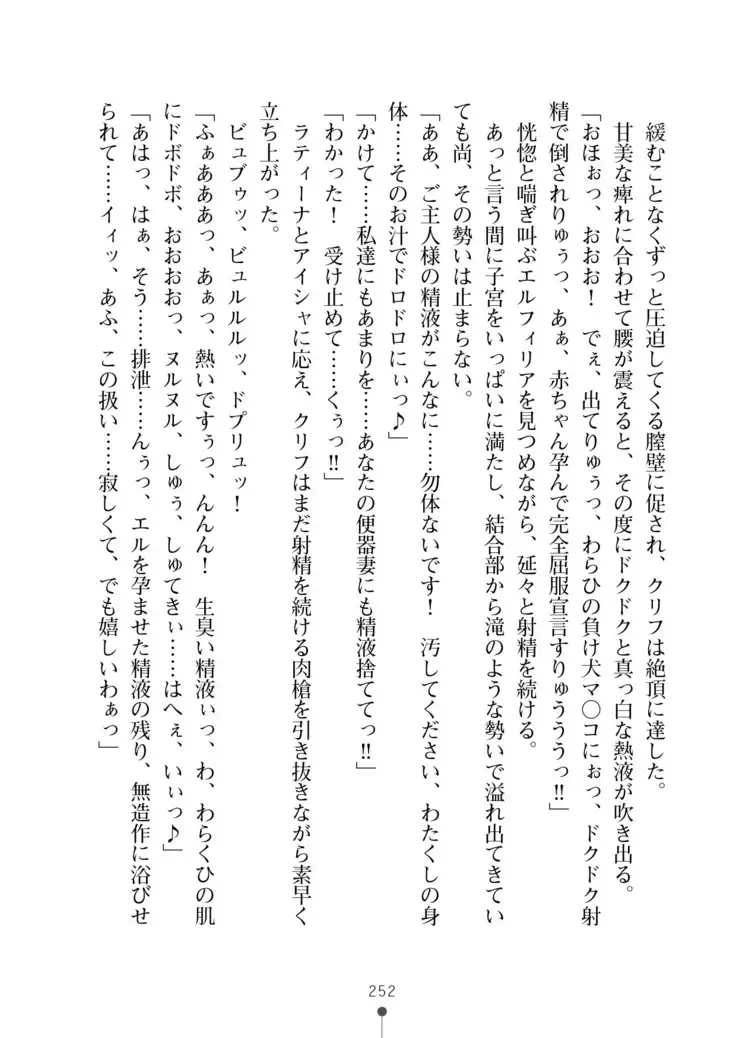 緩むことなくずっと圧迫してくる膣壁に促され、クリフは絶頂に達した。
甘美な痺れに合わせて腰が震えると、その度にドクドクと真っ白な熱液が吹き出る。
「おほぉっ、おおお！　でぇ、出てりゅぅっ、わらひの負け犬マ〇コにぉっ、ドクドク射
精で倒されりゅぅっ、あぁ、赤ちゃん孕んで完全屈服宣言すりゅうううっ‼」
恍惚と喘ぎ叫ぶエルフィリアを見つめながら、延々と射精を続ける。
あっと言う間に子宮をいっぱいに満たし、結合部から滝のような勢いで溢れ出てきてい
ても尚、その勢いは止まらない。
「ああ、ご主人様の精液がこんなに……勿体ないです！　汚してください、わたくしの身
体……そのお汁でドロドロにぃっ♪」
「かけて……私達にもあまりを……あなたの便器妻にも精液捨ててっ‼」
「わかった！　受け止めて……くぅっ‼」
ラティーナとアイシャに応え、クリフはまだ射精を続ける肉槍を引き抜きながら素早く
立ち上がった。
ビュブゥッ、ビュルルルッ、ドプリュッ！
「ふぁあああっ、あぁっ、熱いですぅっ、んんん！　生臭い精液ぃっ、わ、わらくひの肌
にドボドボ、おおおおっ、ヌルヌル、しゅぅ、しゅてきぃ……はへぇ、いぃっ♪」
「あはっ、はぁ、そう……排泄……んぅっ、エルを孕ませた精液の残り、無造作に浴びせ
られて……イィッ、あふ、この扱い……寂しくて、でも嬉しいわぁっ」
252